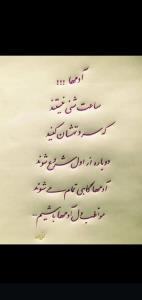 آدمها !!!
ساعت شنی نیستند
که سر و تهشان کنید
دوباره از اول شروع شوند
آدمها گاهی تمام می شوند
مواظب دل آدمها باشیم